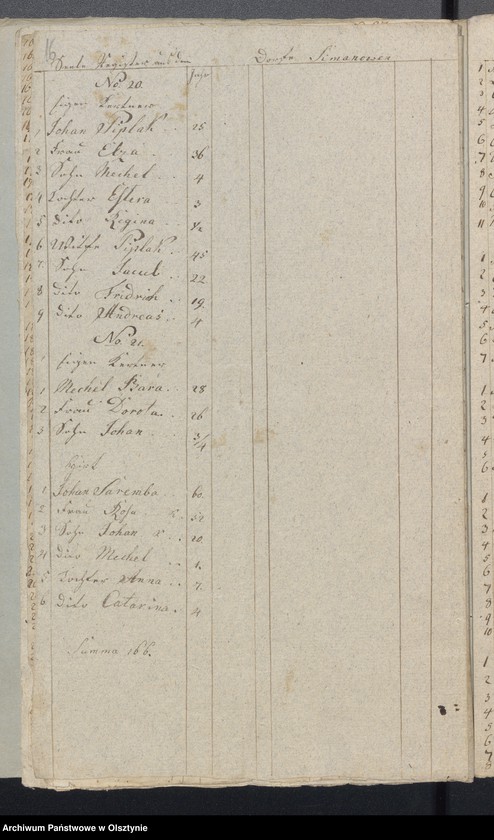 Seele Register aus dem Dorfe Simanowen
Jahr
No. 20.
1 Johan Piplak 25
2 Frau Elza 36
3 Sohn Mechel 4
4 Tochter Estera 3
5 dito Regina 1/2
6 Witfr Piplak 45
7. Sohn Jacub 22
8 dito Fridrich 19.
9 dito Andreas 4
No. 21.
1 Mechel Bara 28
2 Frau Dorota 26
3 Sohn Johan 3/4
1 Johan Sarembo 60.
2 Frau Rosa 52
3 Sohn Johan 20.
4 dito Mechel 1.
5 Tochter Anna 7.
6 dito Catarina 4
Summa 166.
Archiwum Państwowe w Olsztynie